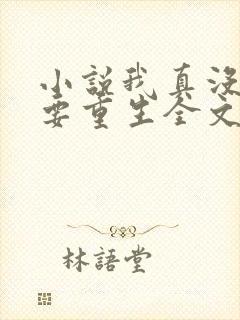 小說我真沒
要重生全文
林語堂